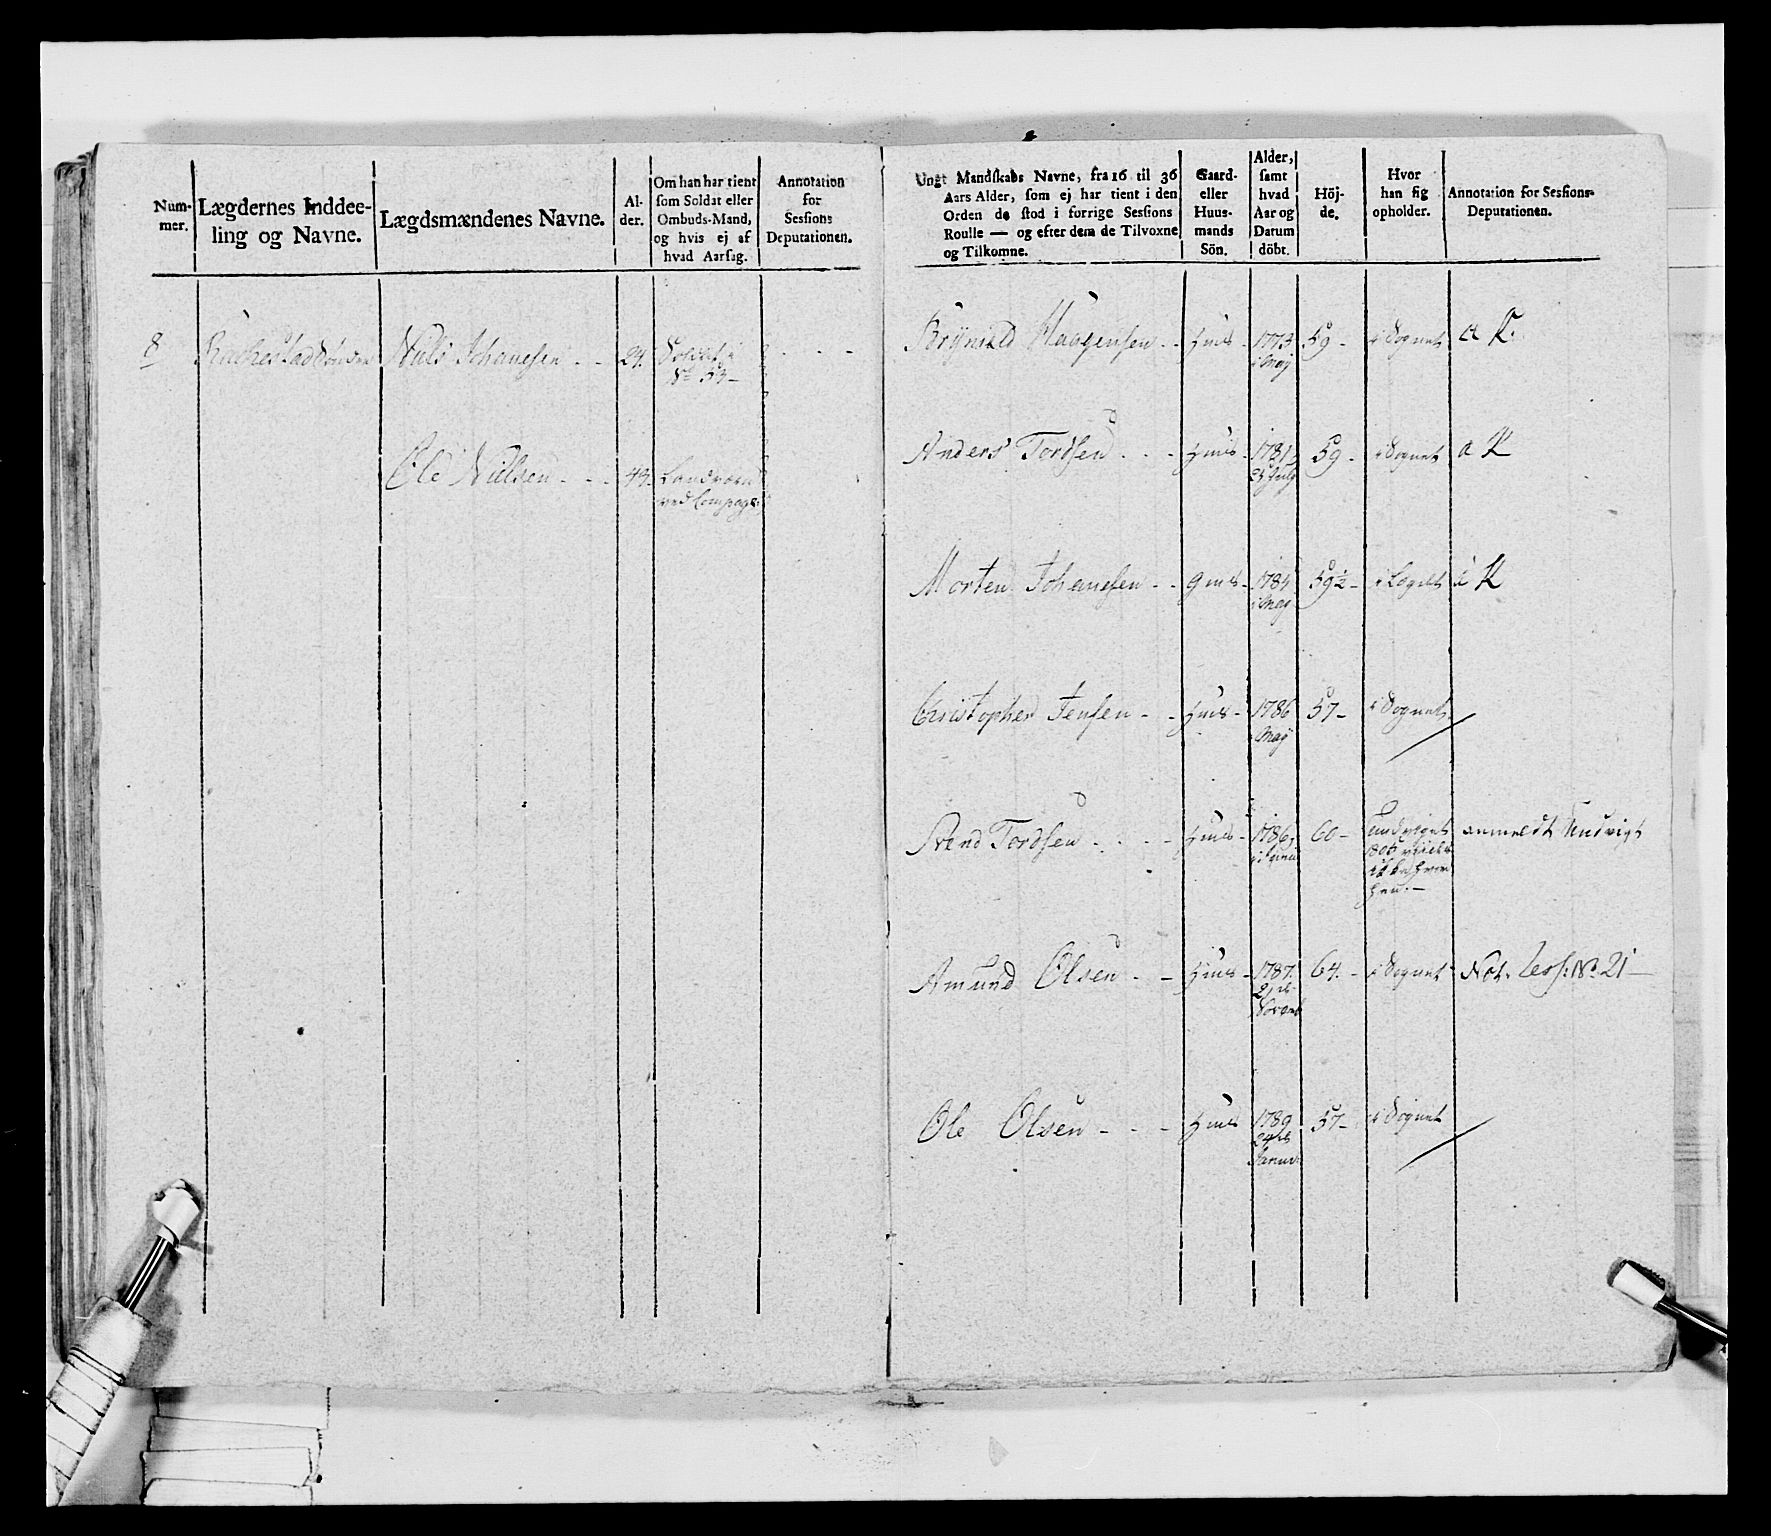 Num-
mer.
Lægdernes Inddee-
ling og Navne.
Lægdsmændenes Navne.
Al-
der.
Om han har tient
som Soldat eller
Ombuds-Mand,
og hvis ej af
hvad Aarsag.
Annotation
for
Sessions
Deputationen.
8
Niels Johanesen - -
24.
Soldat i
No 53 -
Ole Nielsen - - -
43.
Landværn
ved Compag:
Ungt Mandskabs Navne, fra 16 til 36
Aars Alder, som ej har tient i den
Orden de stod i forrige Sessions
Roulle — og efter dem de Tilvoxne
og Tilkomne.
Gaard-
eller
Huus-
mands
Sön.
Alder,
samt
hvad
Aar og
Datum
döbt.
Höj-
de.
Hvor
han sig
opholder.
Annotation for Sessions-
Deputationen.
Brynild Haagensen - - Hms - 1773 59 - i Sognet a K.
i May
Anders Tordsen - - - Hms - 1781 59 - i Sognet a K
25 July
Morten Johansen - - Gms - 1784 59½ - i Lægdet a K
i May
Christopher Jensen - - Hms - 1786 57 - i Sognet
May
Svend Tordsen - - - - Hms - 1786 60 - undviget anmeldt Undvigt
hen. -
Amund Olsen - - Hms - 1787. 64. - i Sognet Not. Cess: No. 21 —
21de
Novemb
Ole Olsen - - - Hms 1789 57 - i Sognet
24de
Januar